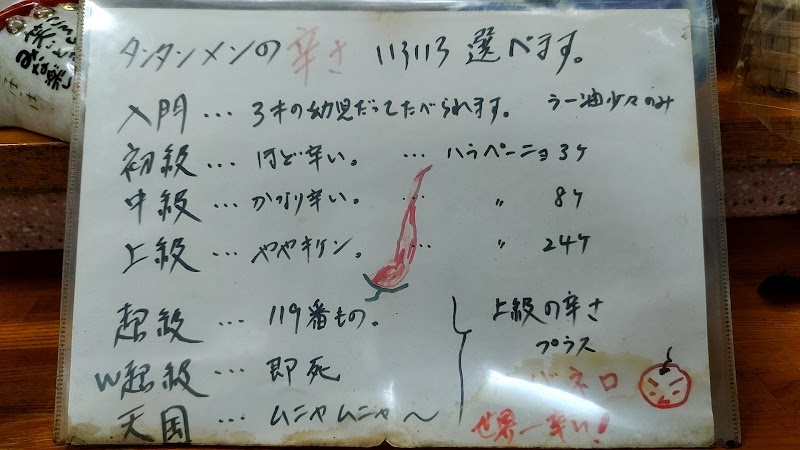 タンタンメンの辛さ いろいろ 選べます。
入門 … 3才の幼児だってたべられます。 ラー油少々のみ
初級 … ほど辛い。 … ハラペーニョ 3ケ
中級 … かなり辛い。 … 〃 8ケ
上級 … ややキケン。 … 〃 24ケ
超級 … 119番もの。
W超級 … 即死
天国 … ムニャムニャ〜
上級の辛さ
プラス
バネロ
世界一辛い!